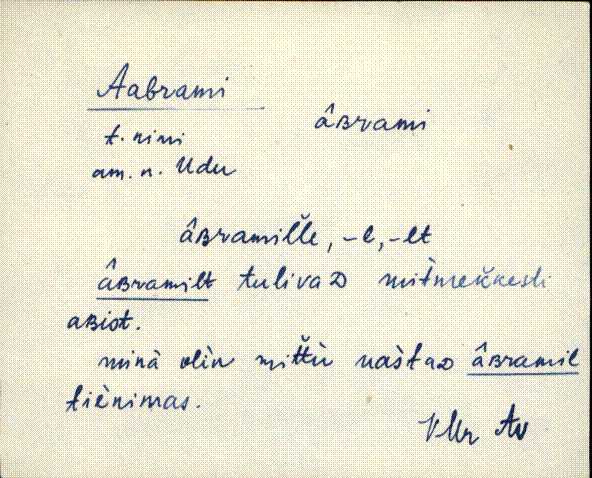 Aabrami
âʙrami
t. nimi
am. n. Udu
âʙramil̆l̆e, -l, -lt
âʙramilt tulivaᴅ mit̀mek̆k̆esti
aʙist.
minà olìn mit̆t̆ù vas̀taᴅ âʙramil
tiènimas.
VMr Av